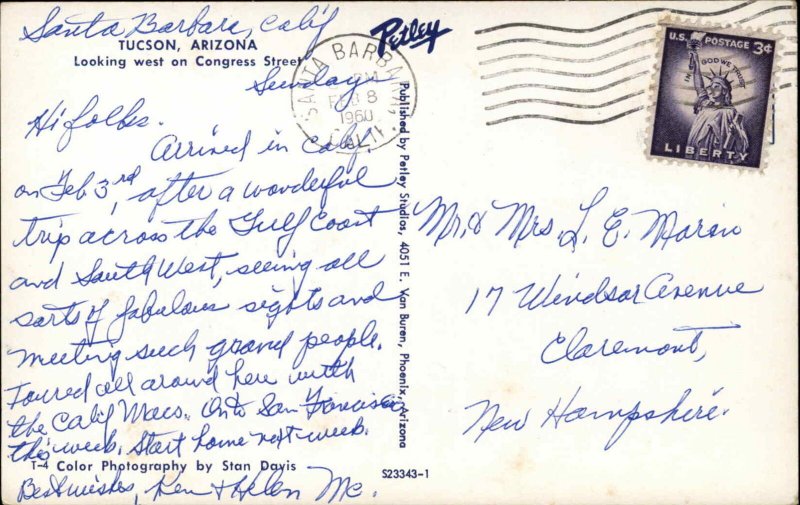 Santa Barbara, Calif
TUCSON, ARIZONA
Looking west on Congress Street
Sunday
Hi folks.
Arrived in Calif.
on Feb 3rd, after a wonderful
trip across the Gulf Coast
and South West, seeing all
sorts of fabulous sights and
meeting such grand people.
Toured all around here with
the Calif Macs. Onto San Francisco
this week. Start home next week.
T-4 Color Photography by Stan Davis
Best wishes, Ken & Helen Mc.
Petley
Published by Petley Studios, 4051 E. Van Buren, Phoenix, Arizona
S23343-1
SANTA BARBARA
PM
FEB 8
1960
CALIF
U.S. POSTAGE 3¢
IN GOD WE TRUST
LIBERTY
Mr. & Mrs. L. E. Marin
17 Windsor Avenue
Claremont,
New Hampshire.